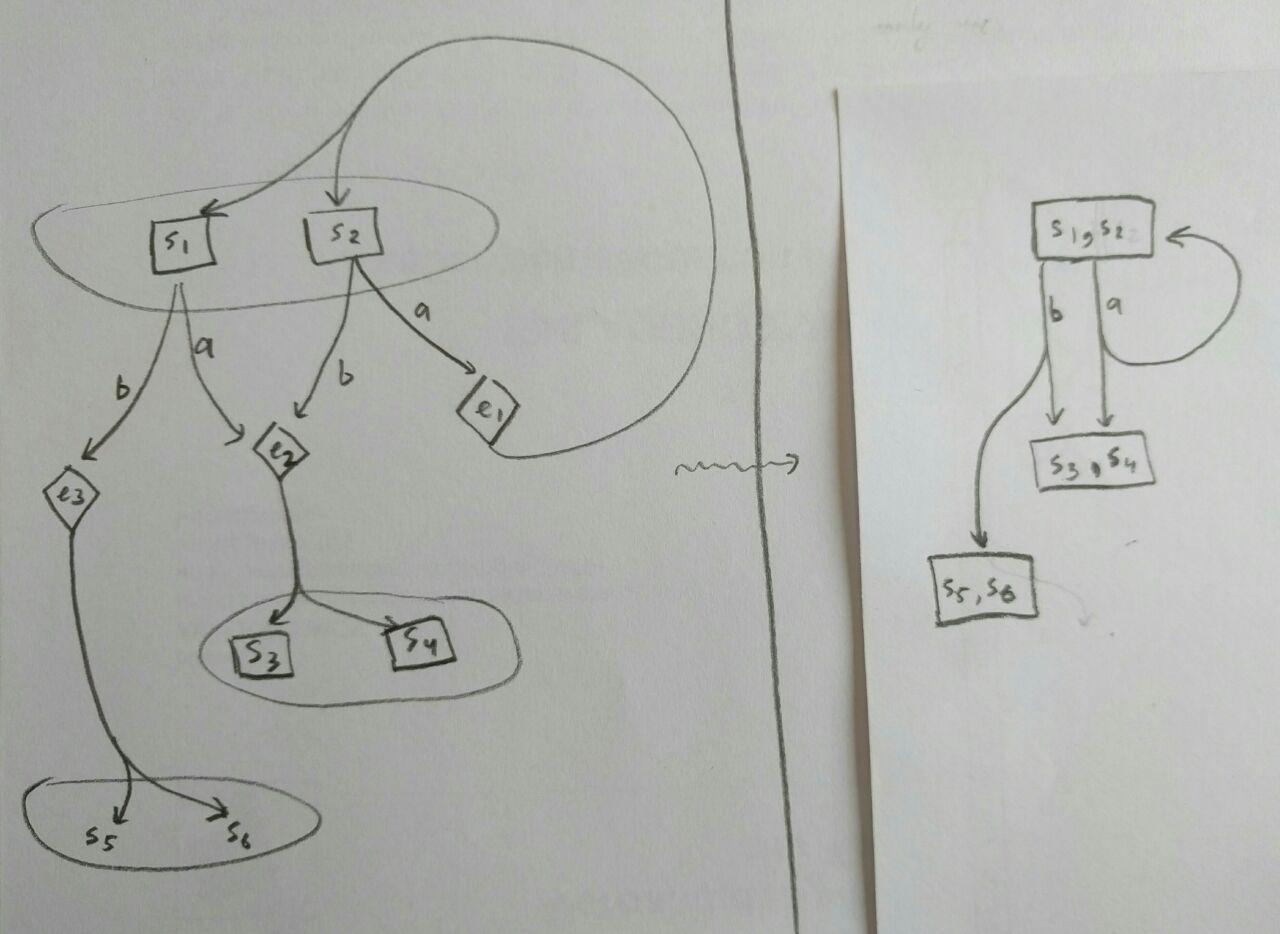 s1 s2
a
b a b
e1
e2
e3
s3 s4
s5 s6
s1,s2
b a
s3,s4
s5,s6